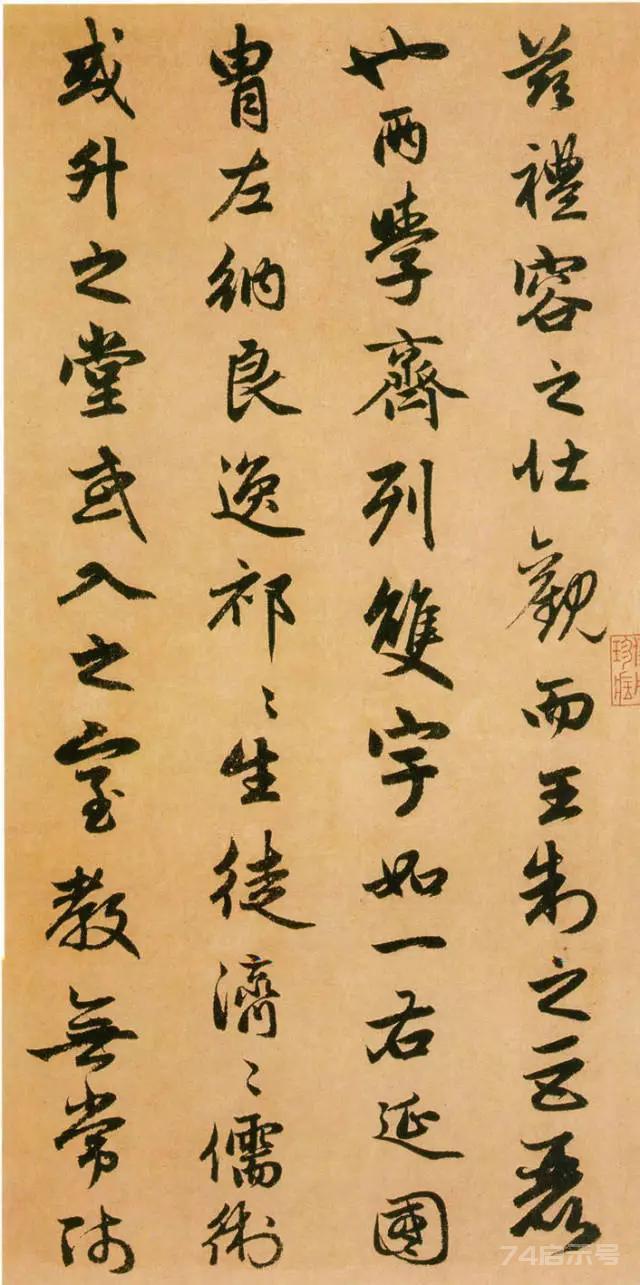 茲禮容之壯觀而王制之巨麗
也兩學齊列雙宇如一右延國
胄左納良逸祁〻生徒濟〻儒術
或升之堂或入之室教無常師
74启示号